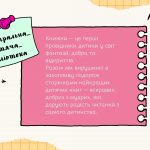 Книжки — це перші
провідники дитини у світ
фантазії, добра та
відкриттів.
Разом ми вирушимо в
захопливу подорож
сторінками найкращих
дитячих книг — яскравих,
добрих і мудрих, які
дарують радість читання з
самого дитинства.